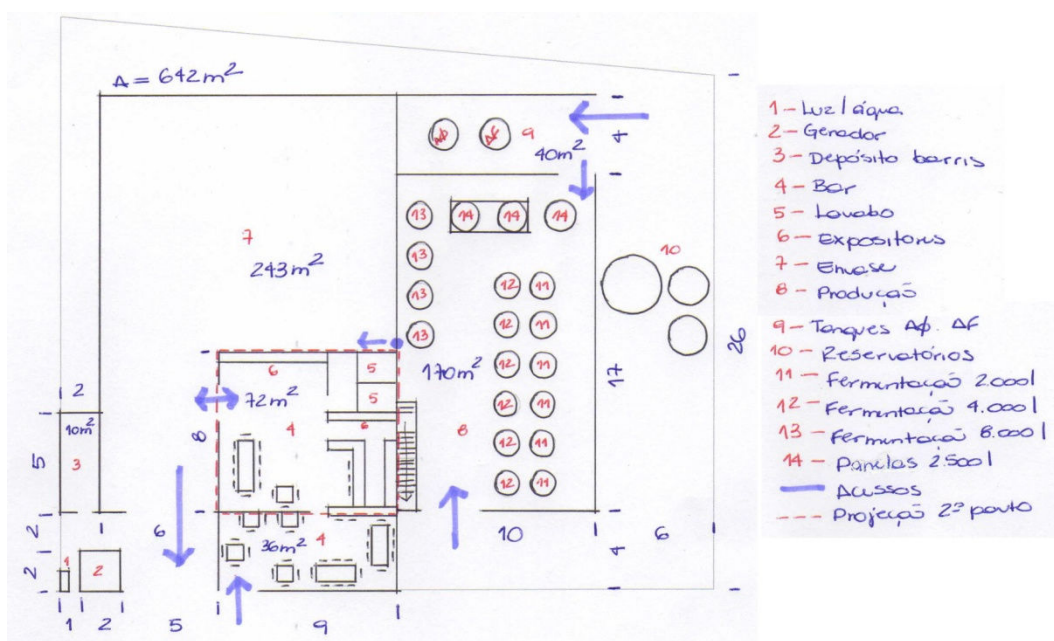 A = 642m²
AØ AF 9
40m²
4
13 14 14 14
13
13
13
12 11
12 11
12 11
12 11
12 11
12 11
10
7
243m²
170m²
17
26
6 5
5
72m²
4 6
8
8
2
10m²
3
5
2
2
6
1
2
36m² 4
10
4
6
1 2 5 9
1 - Luz/água
2 - Gerador
3 - Depósito barris
4 - Bar
5 - Lavabo
6 - Expositores
7 - Envase
8 - Produção
9 - Tanques AØ. AF
10 - Reservatórios
11 - Fermentação 2.000l
12 - Fermentação 4.000l
13 - Fermentação 8.000l
14 - Panelas 2.500l
Acessos
Projeção 2º pavto